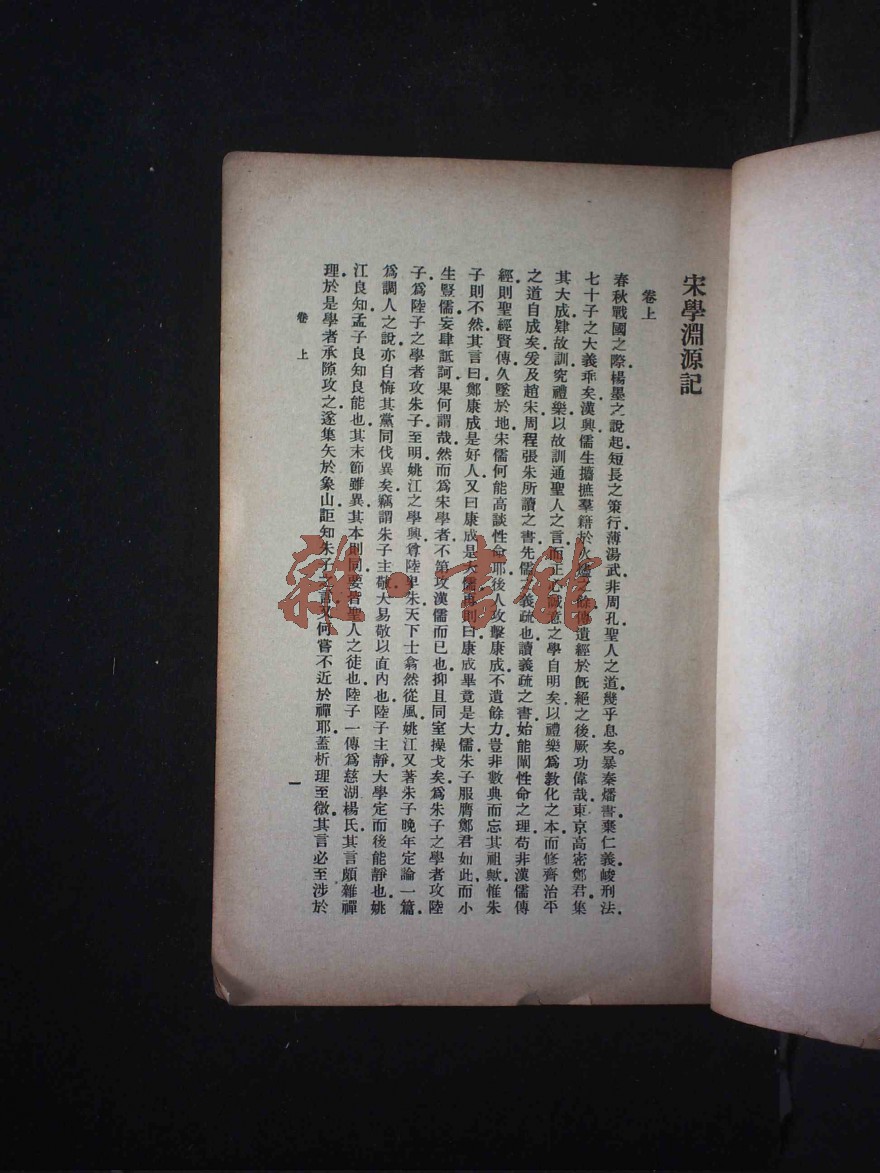 宋學淵源記
卷上
春秋戰國之際楊墨之說起短長之策行薄湯武非周孔聖人之道幾乎息矣。暴秦燔書棄仁義峻刑法
七十子之大義乖矣漢興儒生攟摭羣籍於火燼之餘傳遺經於旣絕之後厥功偉哉東京高密鄭君集
其大成肄故訓究禮樂以故訓通聖人之言而正心誠意之學自明矣以禮樂爲敎化之本而修齊治平
之道自成矣爰及趙宋周程張朱所讀之書先儒之義疏也讀義疏之書始能闡性命之理苟非漢儒傳
經則聖經賢傳久墜於地宋儒何能高談性命耶後人攻擊康成不遺餘力豈非數典而忘其祖歟惟朱
子則不然其言曰鄭康成是好人又曰康成是大儒再則曰康成畢竟是大儒朱子服膺鄭君如此而小
生豎儒妄肆詆訶果何謂哉然而爲宋學者不第攻漢儒而已也抑且同室操戈矣爲朱子之學者攻陸
子爲陸子之學者攻朱子至明姚江之學興尊陸卑朱天下士翕然從風姚江又著朱子晚年定論一篇
爲調人之說亦自悔其黨同伐異矣竊謂朱子主敬大易敬以直內也陸子主靜大學定而後能靜也姚
江良知孟子良知良能也其末節雖異其本則同要皆聖人之徒也陸子一傳爲慈湖楊氏其言頗雜禪
理於是學者承隙攻之遂集矢於象山詎知朱子之言又何嘗不近於禪耶蓋析理至微其言必至涉於
卷上
一
雜·書館